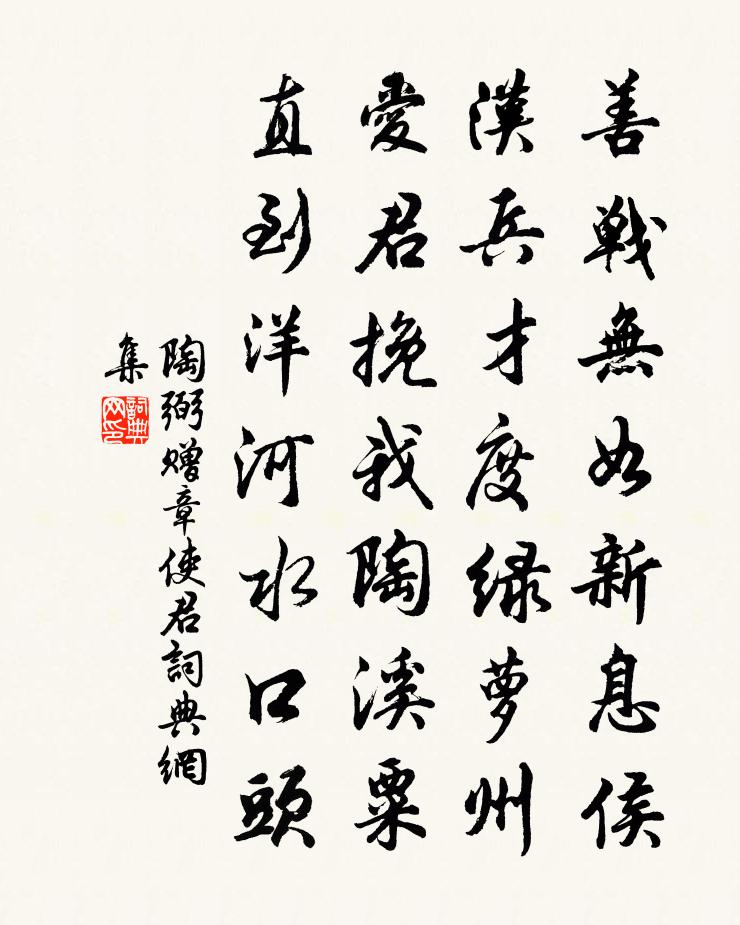 善戦無如新息侯
漢兵才度綠蘿州
愛君挽我陶溪粟
直到洋河水口頭
陶弼贈章使君詞典網
集
詞典
网印